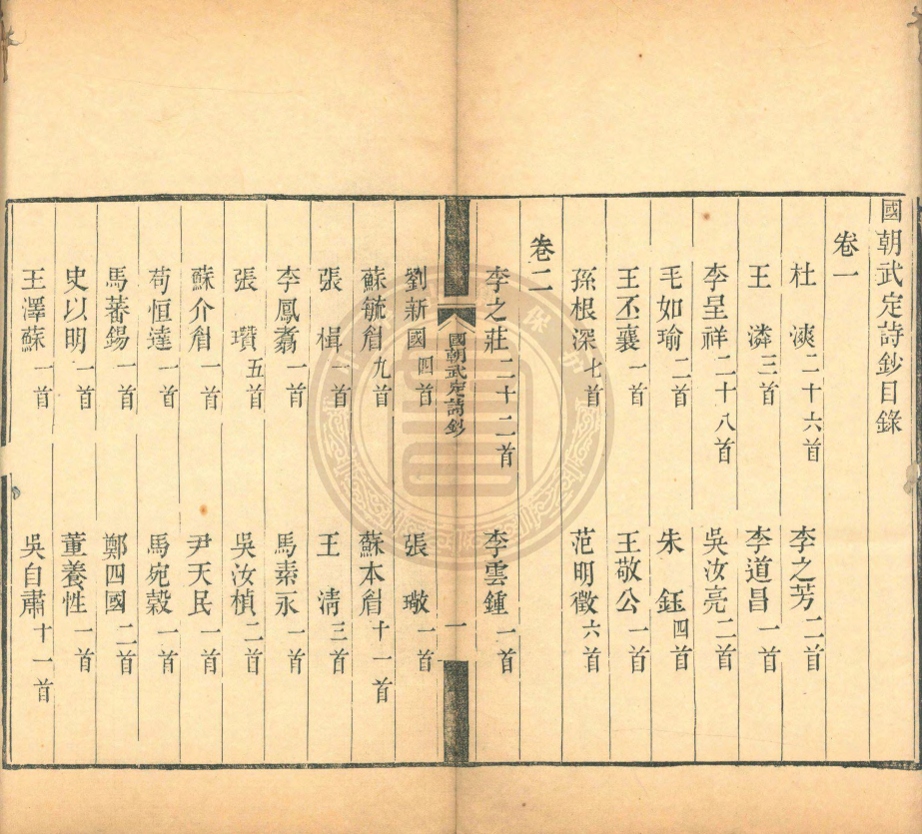 國朝武定詩鈔目錄
卷一
杜漺二十六首 李之芳二首
王潾三首 李道昌一首
李呈祥二十八首 吳汝亮二首
毛如瑜二首 朱鈺四首
王丕襄一首 王敬公一首
孫根深七首 范明徵六首
卷二
李之莊二十二首 李雲鍾一首
國朝武定詩鈔 一
劉新國四首 張璥一首
蘇毓眉九首 蘇本眉十一首
張楫一首 王淸三首
李鳳翥一首 馬素永一首
張瓚五首 吳汝楨二首
蘇介眉一首 尹天民一首
苟恒達一首 馬宛榖一首
馬蕃錫一首 鄭四國二首
史以明一首 董養性一首
王澤蘇一首 吳自肅十一首